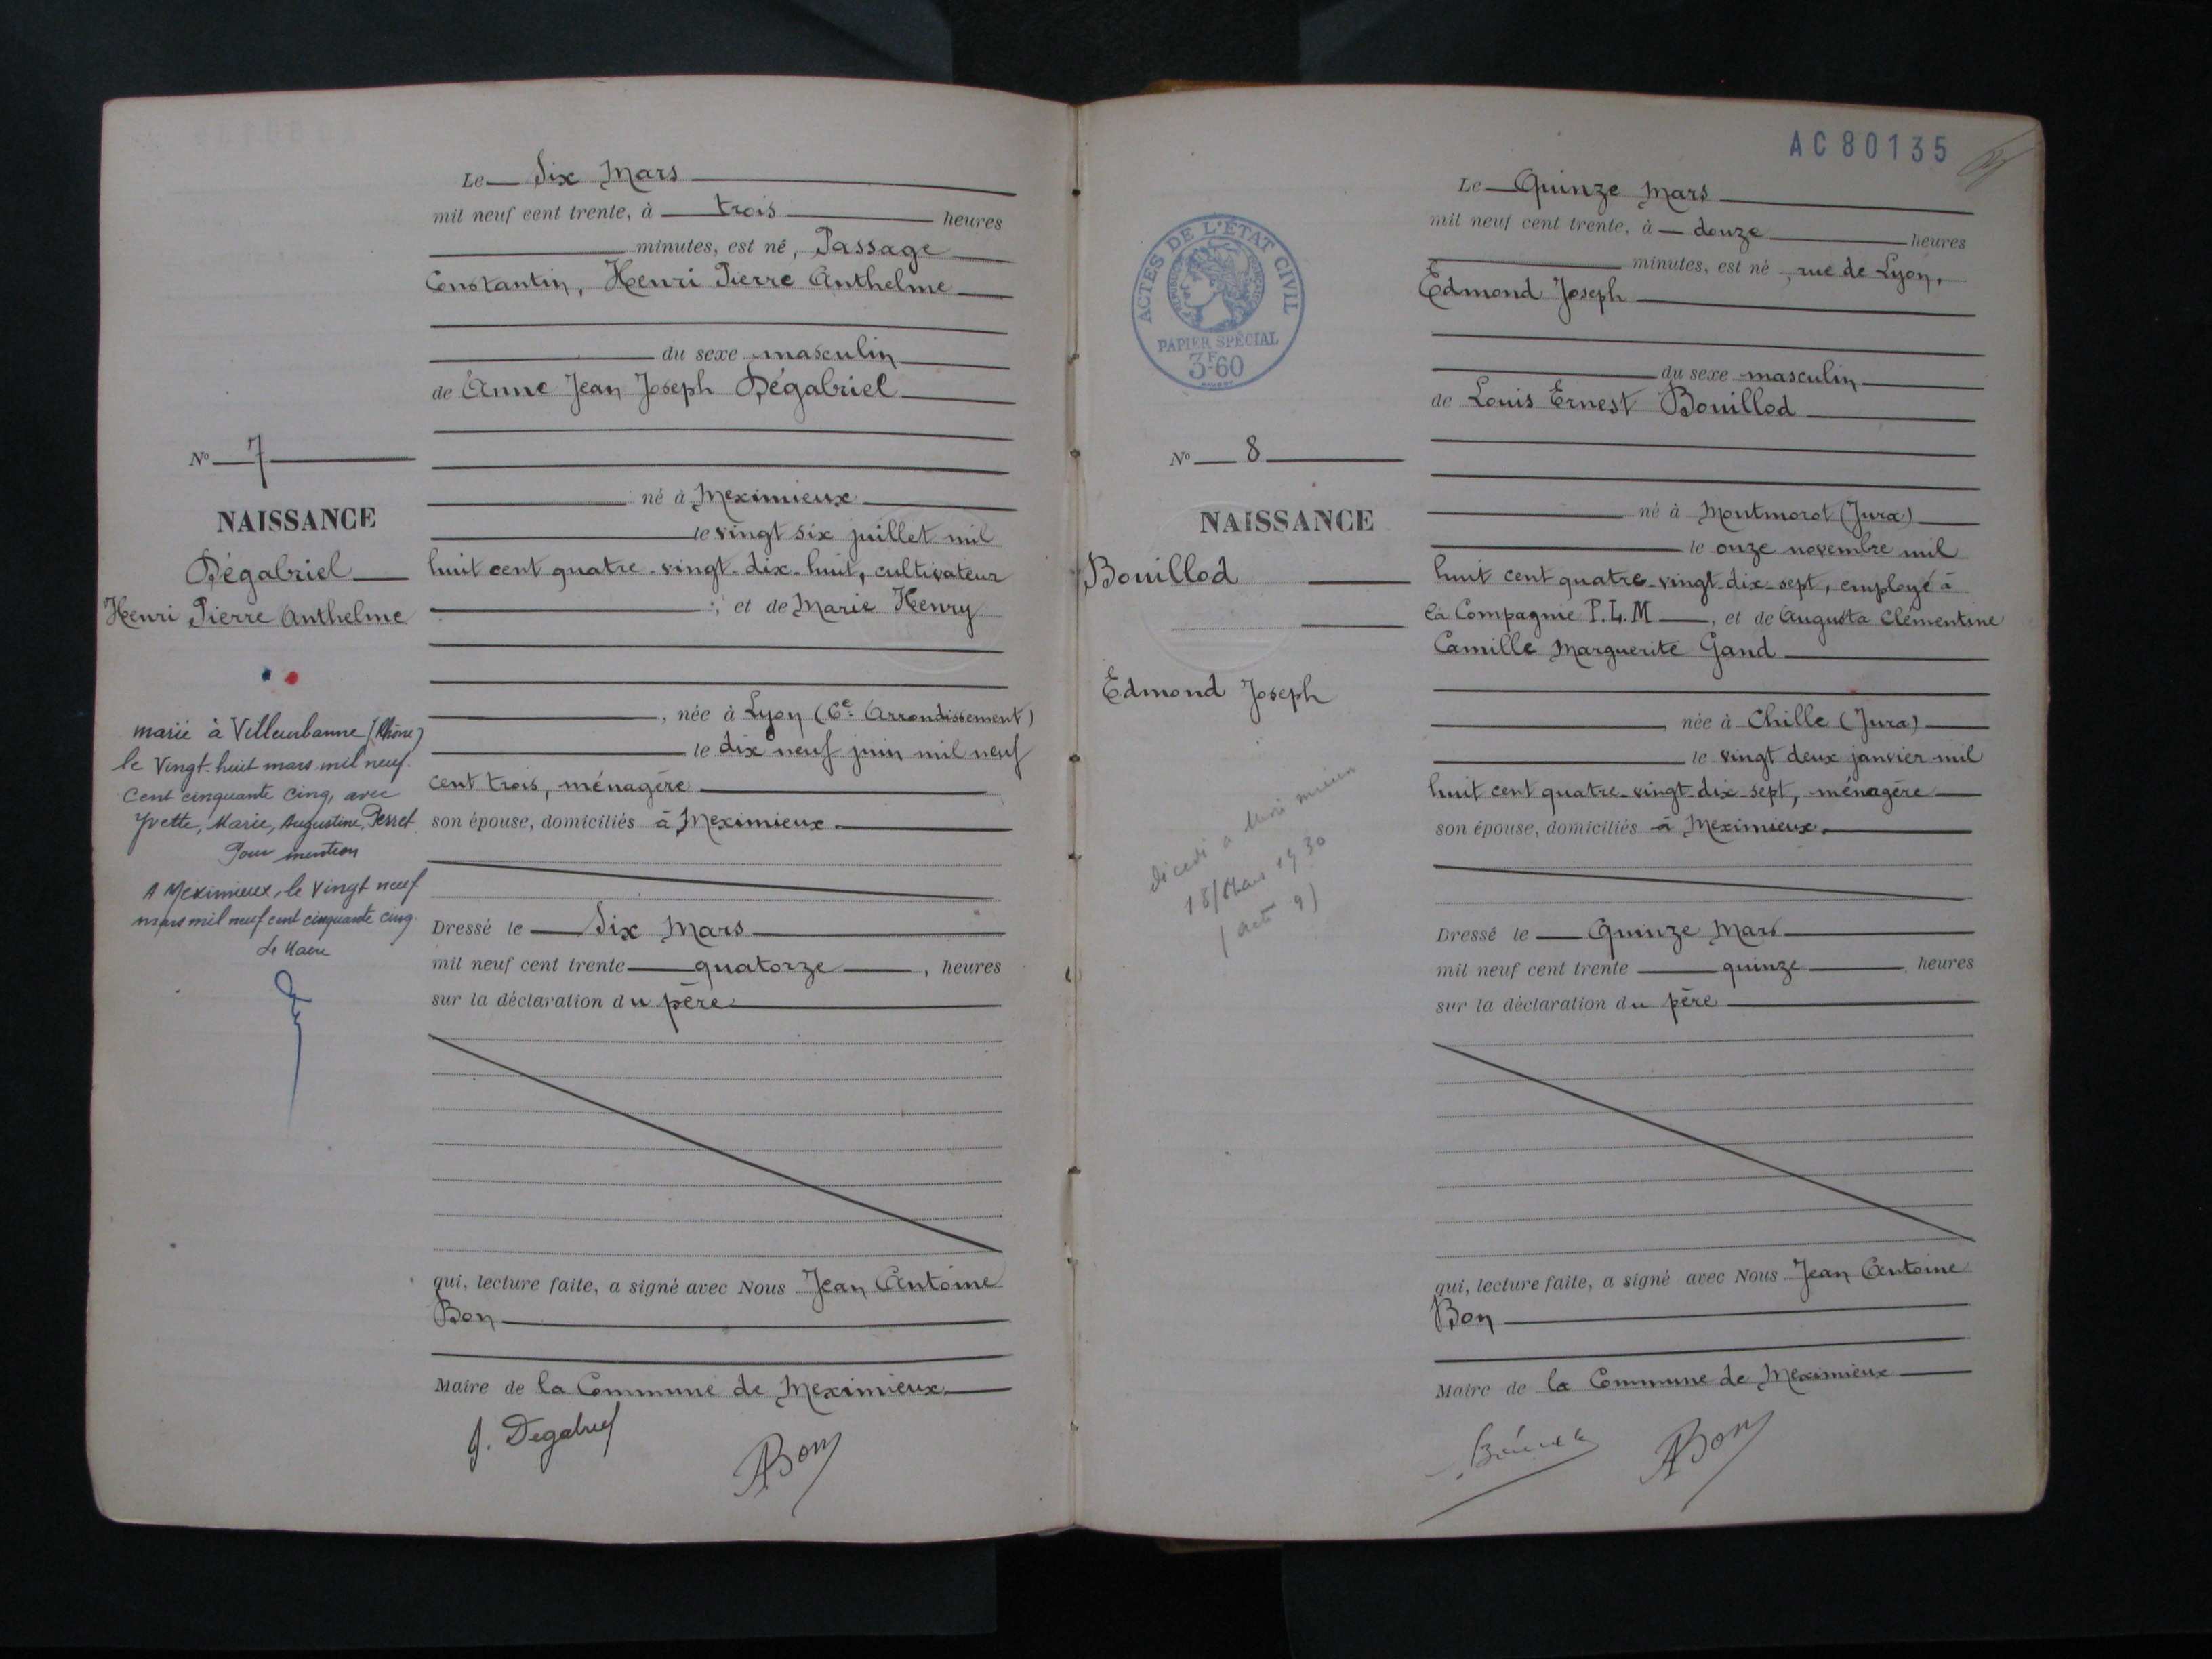 Le Six Mars
mil neuf cent trente, à trois heures
minutes, est né, Passage
Constantin, Henri Pierre Anthelme
du sexe masculin
de Anne Jean Joseph Dégabriel
né à Meximieux
le vingt six juillet mil
huit cent quatre-vingt-dix-huit, cultivateur
; et de Marie Henry
, née à Lyon (6e Arrondissement)
le dix neuf juin mil neuf
cent trois, ménagère
son épouse, domiciliés à Meximieux
Dressé le Six Mars
mil neuf cent trente quatorze, heures
sur la déclaration du père
qui, lecture faite, a signé avec Nous Jean Antoine
Bon
Maire de la Commune de Meximieux
J. Degabriel
ABon
No 7
NAISSANCE
Dégabriel
Henri Pierre Anthelme
marié à Villeurbanne (Rhône)
le Vingt-huit mars mil neuf
Cent cinquante cinq, avec
Yvette, Marie, Augustine, Perret
Pour mention
A Meximieux, le Vingt neuf
mars mil neuf cent cinquante cinq
Le Maire
AC80135
ACTES DE L'ÉTAT CIVIL
PAPIER SPÉCIAL
3F60
No 8
NAISSANCE
Bouillod
Edmond Joseph
18/Mars 1930
(acte 9)
Le Quinze Mars
mil neuf cent trente, à douze heures
minutes, est né, rue de Lyon,
Edmond Joseph
du sexe masculin
de Louis Ernest Bouillod
né à Montmorot (Jura)
le onze novembre mil
huit cent quatre-vingt-dix-sept, employé à
la Compagnie P.L.M, et de Augusta Clémentine
Camille Marguerite Gand
née à Chille (Jura)
le vingt deux janvier mil
huit cent quatre-vingt-dix-sept, ménagère
son épouse, domiciliés à Meximieux.
Dressé le Quinze Mars
mil neuf cent trente quinze heures
sur la déclaration du père
qui, lecture faite, a signé avec Nous Jean Antoine
Bon
Maire de la Commune de Meximieux
ABon